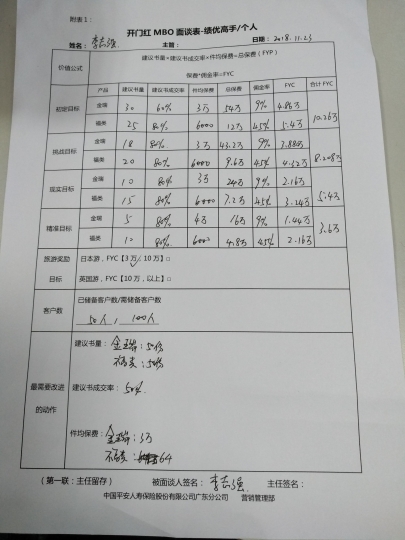 附表1：
开门红 MBO 面谈表-绩优高手/个人
姓名：李志强 主管： 日期：2018.11.23
价值公式 建议书量×建议书成交率×件均保费=总保费（FYP）
保费*佣金率=FYC
产品 建议书量 建议书成交率 件均保费 总保费 佣金率 FYC 合计 FYC
初定目标 金瑞 30 60% 3万 54万 9% 4.86万 10.26万
福类 25 80% 6000 12万 45% 5.4万
挑战目标 金瑞 18 80% 3万 43.2万 9% 3.888万 8.208万
福类 20 80% 6000 9.6万 45% 4.32万
现实目标 金瑞 10 80% 3万 24万 9% 2.16万 5.4万
福类 15 80% 6000 7.2万 45% 3.24万
精准目标 金瑞 5 80% 4万 16万 9% 1.44万 3.6万
福类 10 80% 6000 4.8万 45% 2.16万
旅游奖励 日本游，FYC【3万/10万】□
目标 英国游，FYC【10万，以上】□
客户数 已储备客户数/需储备客户数
50人，100人
最需要改进的动作
建议书量：金瑞：50份
福类：50份
建议书成交率：50%
件均保费：金瑞：3万
福类：64
（第一联：主任留存） 被面谈人签名：李志强 主任签名：
中国平安人寿保险股份有限公司广东分公司 营销管理部